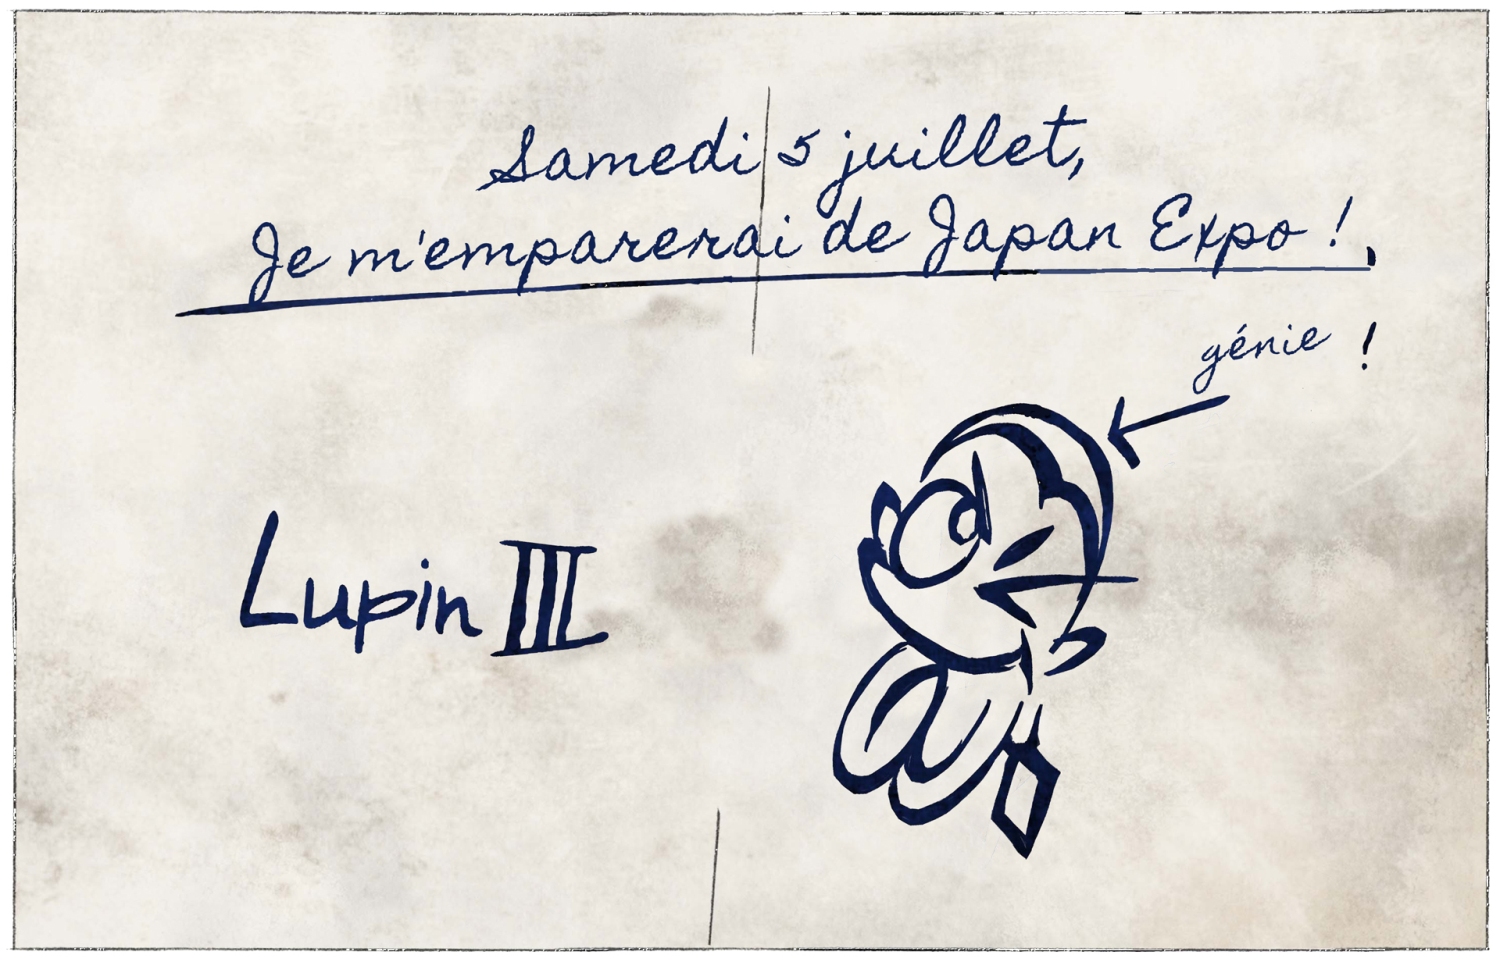 Samedi 5 juillet,
Je m'emparerai de Japan Expo !
génie !
Lupin III